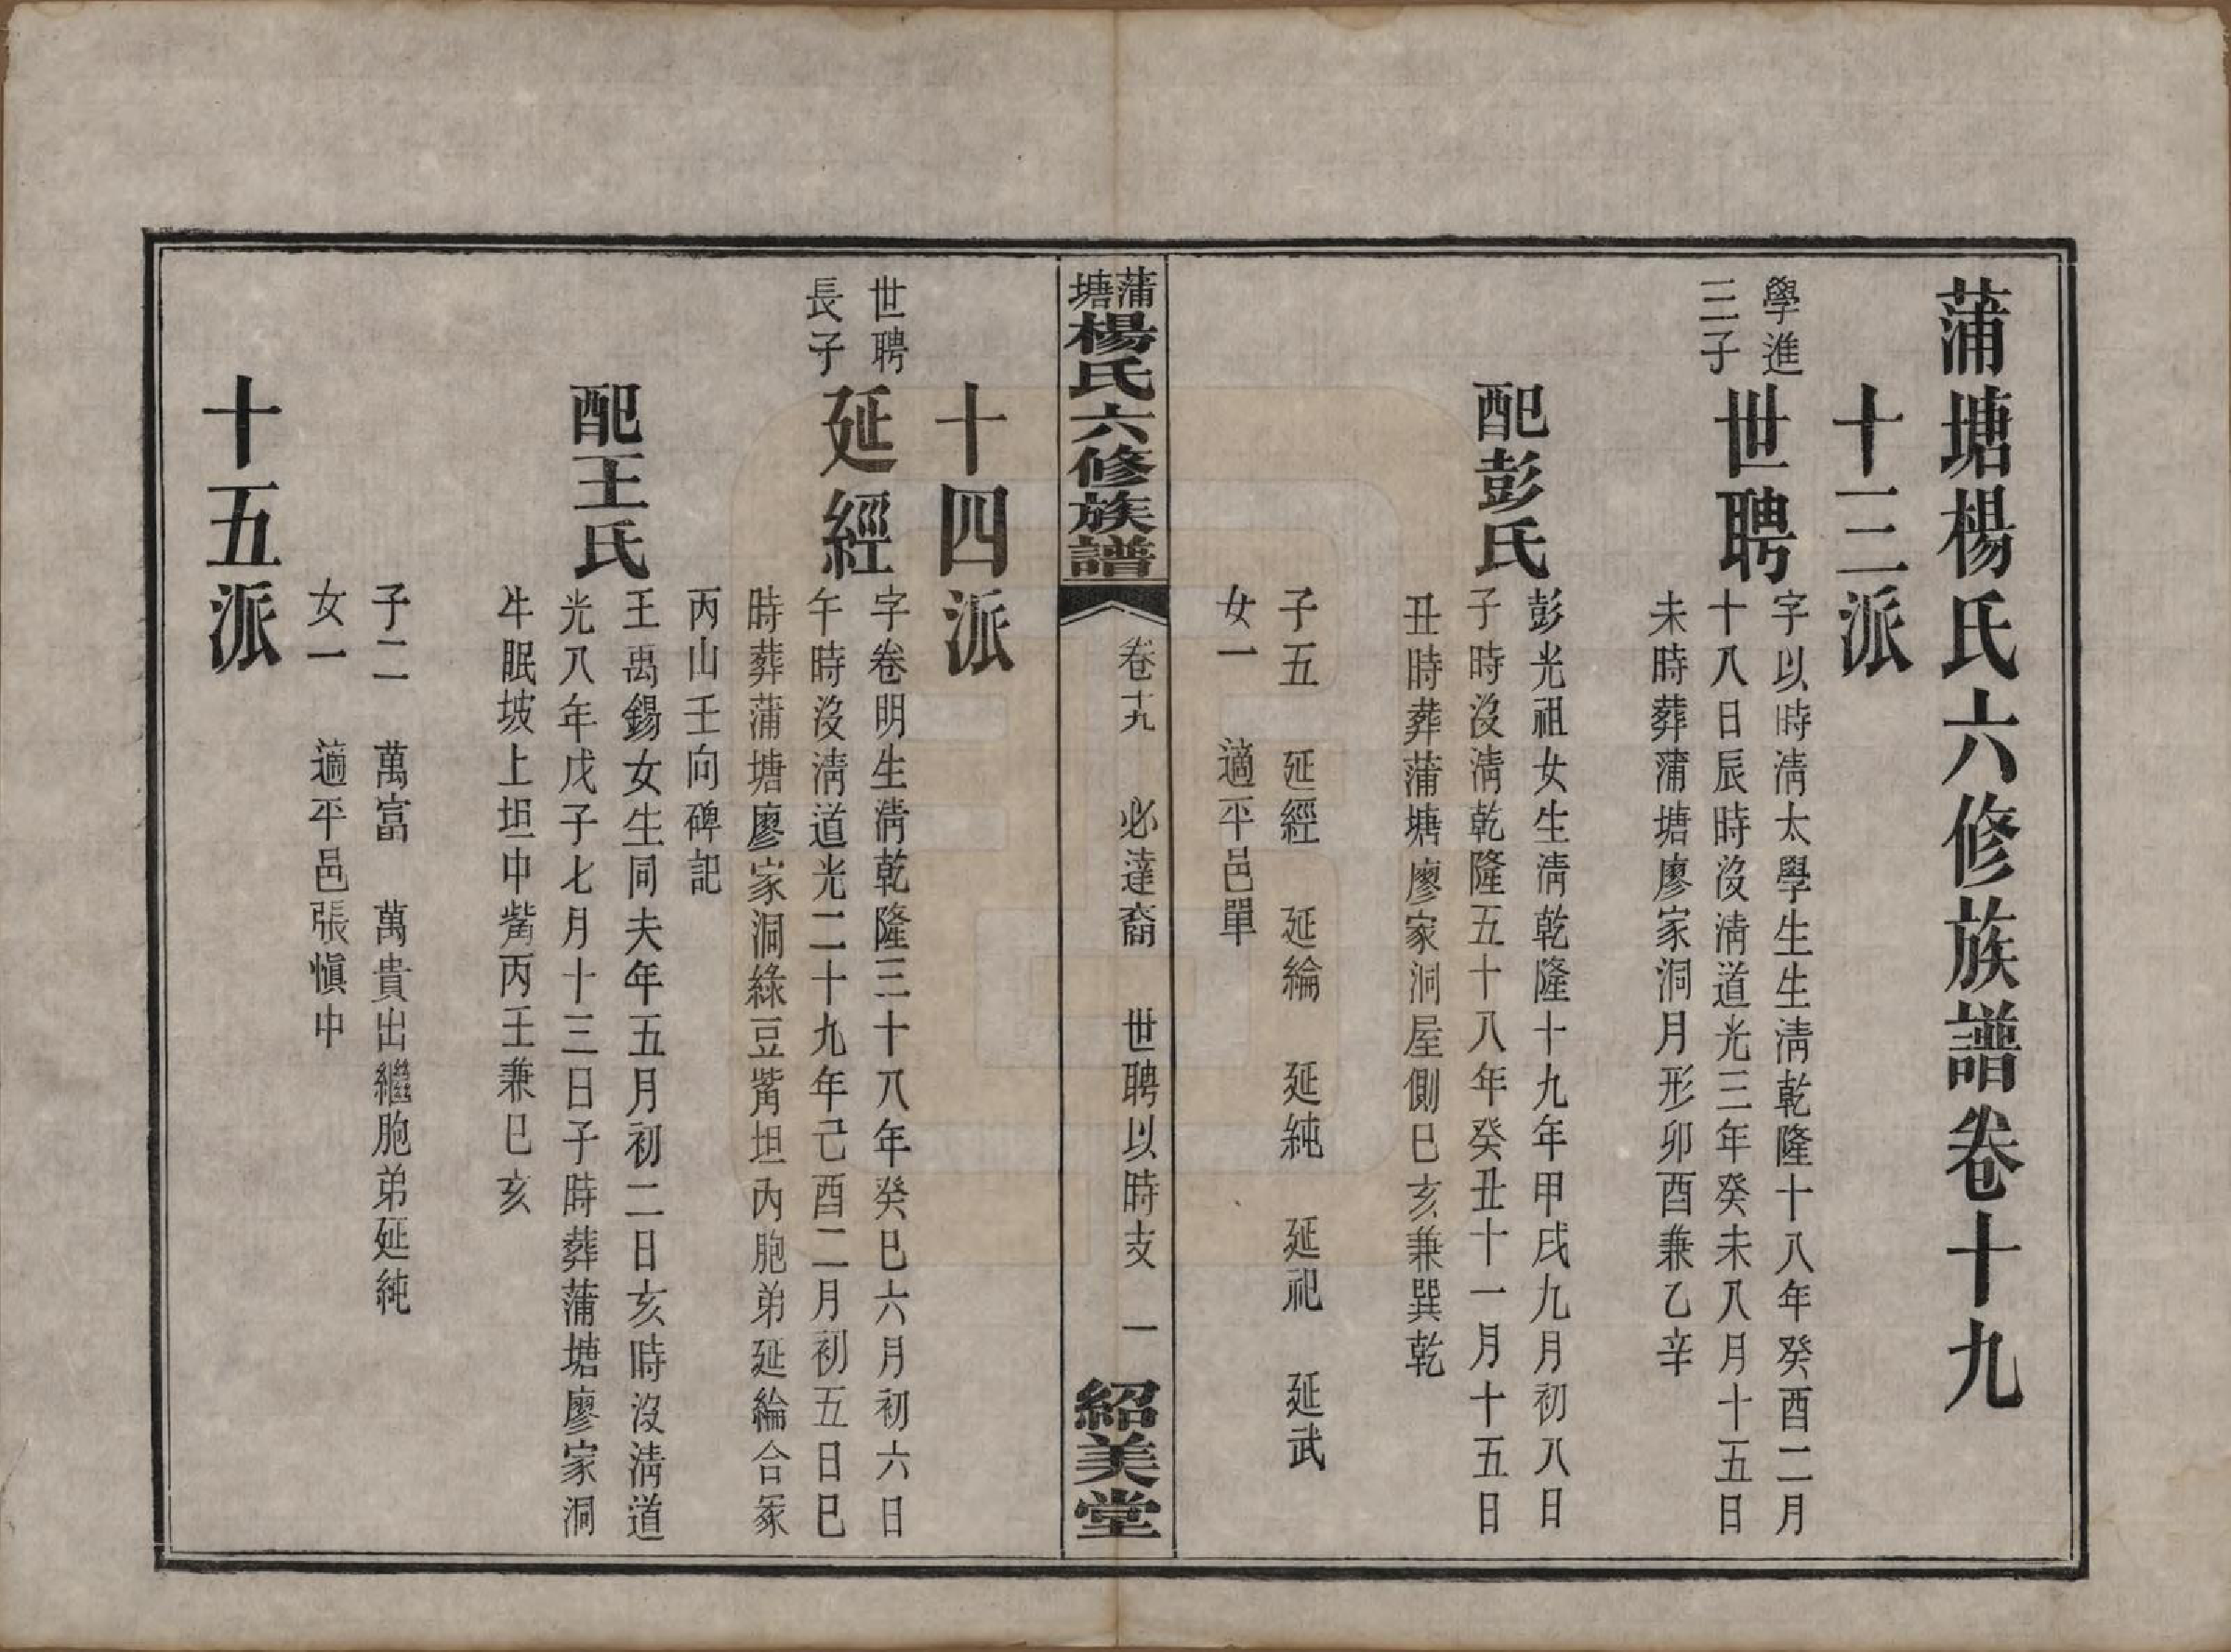 蒲塘楊氏六修族譜卷十九
十三派
學進
三子
世聘
字以時淸太學生生淸乾隆十八年癸酉二月
十八日辰時沒淸道光三年癸未八月十五日
未時葬蒲塘廖家洞月形卯酉兼乙辛
配彭氏
彭光祖女生淸乾隆十九年甲戌九月初八日
子時沒淸乾隆五十八年癸丑十一月十五日
丑時葬蒲塘廖家洞屋側巳亥兼巽乾
子五 延經 延綸 延純 延祀 延武
女一 適平邑單
蒲塘楊氏六修族譜 卷十九 必達裔 世聘以時支 一 紹美堂
十四派
世聘
長子
延經
字卷明生淸乾隆三十八年癸巳六月初六日
午時沒淸道光二十九年己酉二月初五日巳
時葬蒲塘廖家洞綠豆觜坦內胞弟延綸合冢
丙山壬向碑記
配王氏
王禹錫女生同夫年五月初二日亥時沒淸道
光八年戊子七月十三日子時葬蒲塘廖家洞
牛眠坡上坦中觜丙壬兼巳亥
子二 萬富 萬貴出繼胞弟延純
女一 適平邑張愼中
十五派